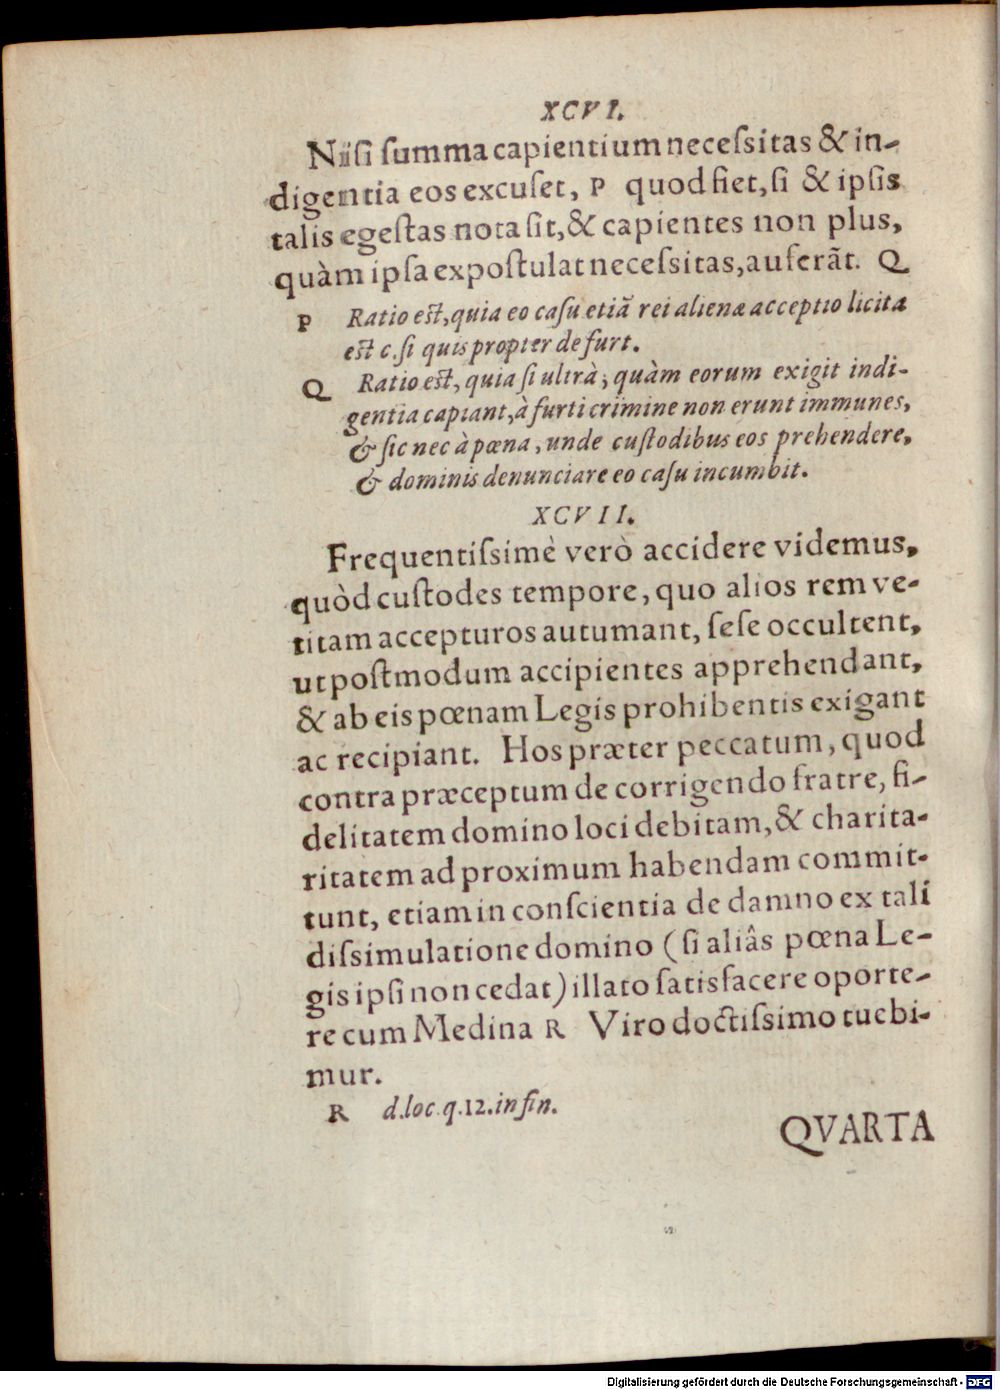 XCVI.
Niſi ſumma capientium neceſsitas & in-
digentia eos excuſet, P quod fiet, ſi & ipſis
talis egeſtas nota ſit, & capientes non plus,
quàm ipſa expoſtulat neceſsitas, auferãt. Q
P Ratio eſt, quia eo caſu etiã rei alienæ acceptio licita
eſt c. ſi quis propter de furt.
Q Ratio eſt, quia ſi ultrà, quàm eorum exigit indi-
gentia capiant, à furti crimine non erunt immunes,
& ſic nec à pœna, unde cuſtodibus eos prehendere,
& dominis denunciare eo caſu incumbit.
XCVII.
Frequentiſsimè verò accidere videmus,
quòd cuſtodes tempore, quo alios rem ve-
titam accepturos autumant, ſeſe occultent,
ut poſtmodum accipientes apprehendant,
& ab eis pœnam Legis prohibentis exigant
ac recipiant. Hos præter peccatum, quod
contra præceptum de corrigendo fratre, fi-
delitatem domino loci debitam, & charita-
ritatem ad proximum habendam commit-
tunt, etiam in conſcientia de damno ex tali
diſsimulatione domino (ſi aliâs pœna Le-
gis ipſi non cedat) illato ſatisfacere oporte-
re cum Medina R Viro doctiſsimo tuebi-
mur.
R d. loc. q. 12. in fin.
QVARTA
Digitalisierung gefördert durch die Deutsche Forschungsgemeinschaft - DFG